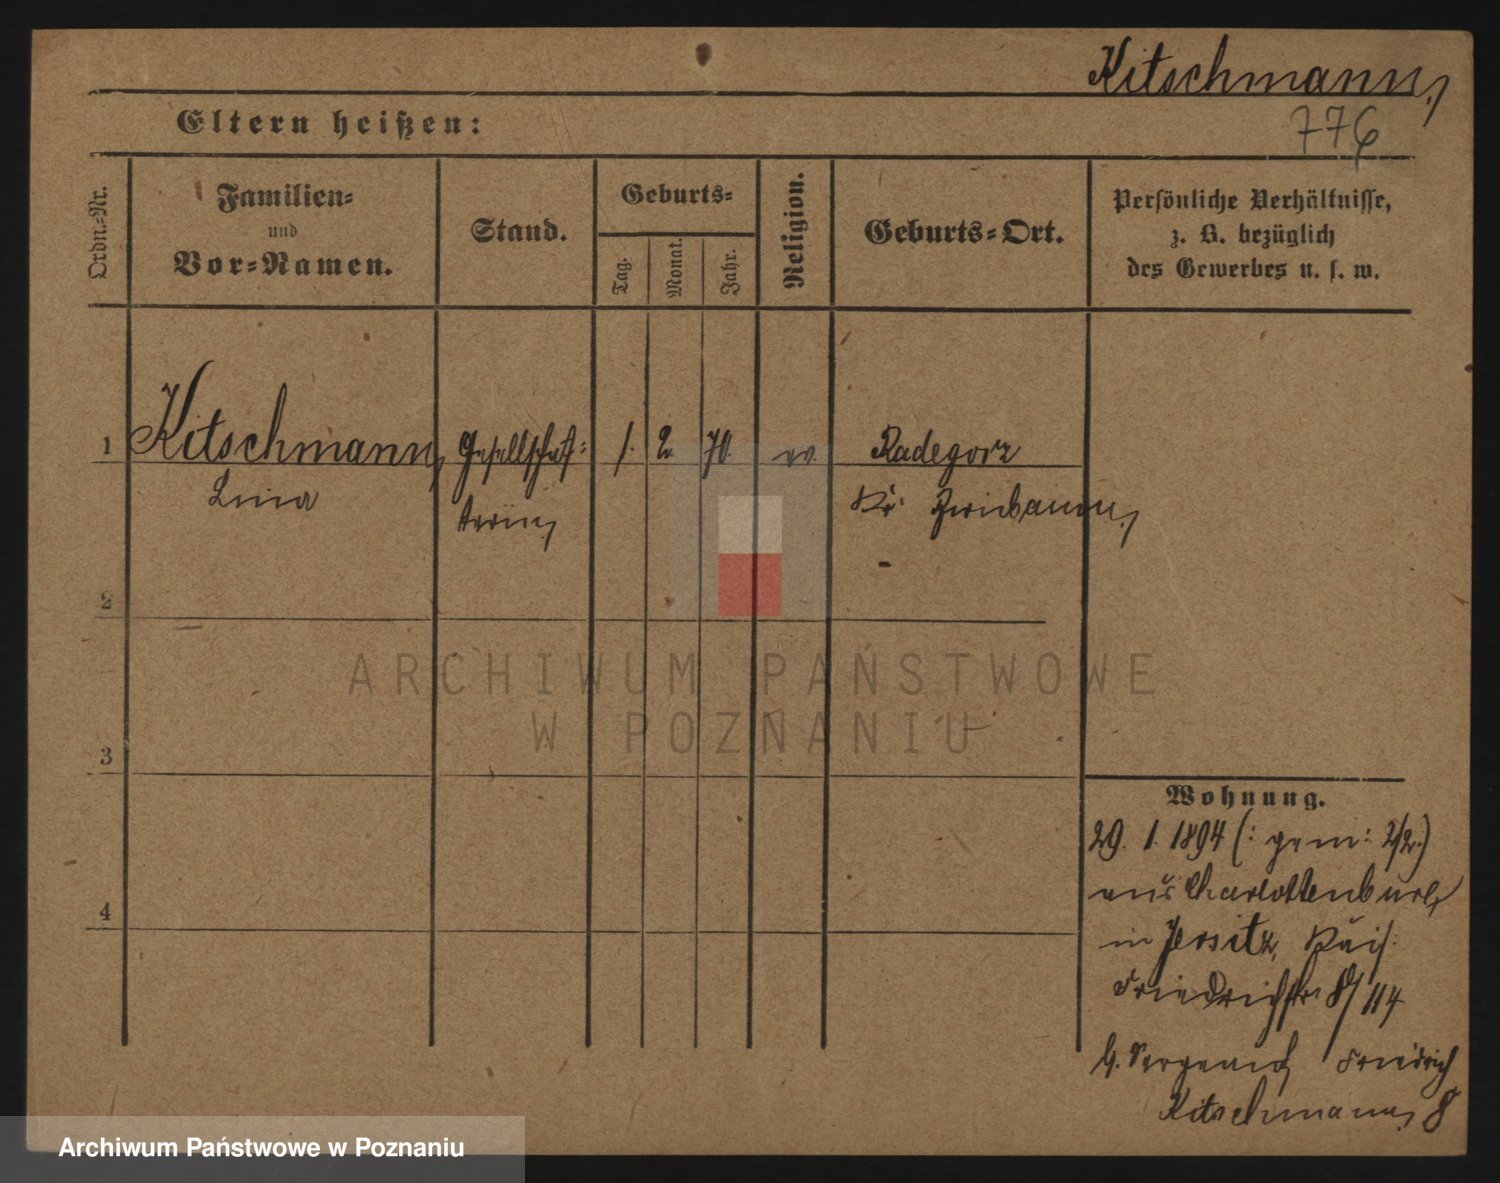 Kitschmann,
776
Eltern heißen:
Ordn.=Nr.
Familien=
und
Vor=Namen.
Stand.
Geburts=
Tag.
Monat.
Jahr.
Religion.
Geburts=Ort.
Persönliche Verhältnisse,
z. B. bezüglich
des Gewerbes u. s. w.
1 Kitschmann, Gesellschaf= 1. 2. 70. ev. Radegorz
Lina terin, Kr. Birnbaum,
2
ARCHIWUM PAŃSTWOWE
W POZNANIU
3
Wohnung.
29. 1. 1894 (: gem: 2/2.)
aus Charlottenburg
4
in Jersitz, Kais:
Friedrichstr. 8/114
b. Friedrich
Kitschmann, 8
Archiwum Państwowe w Poznaniu